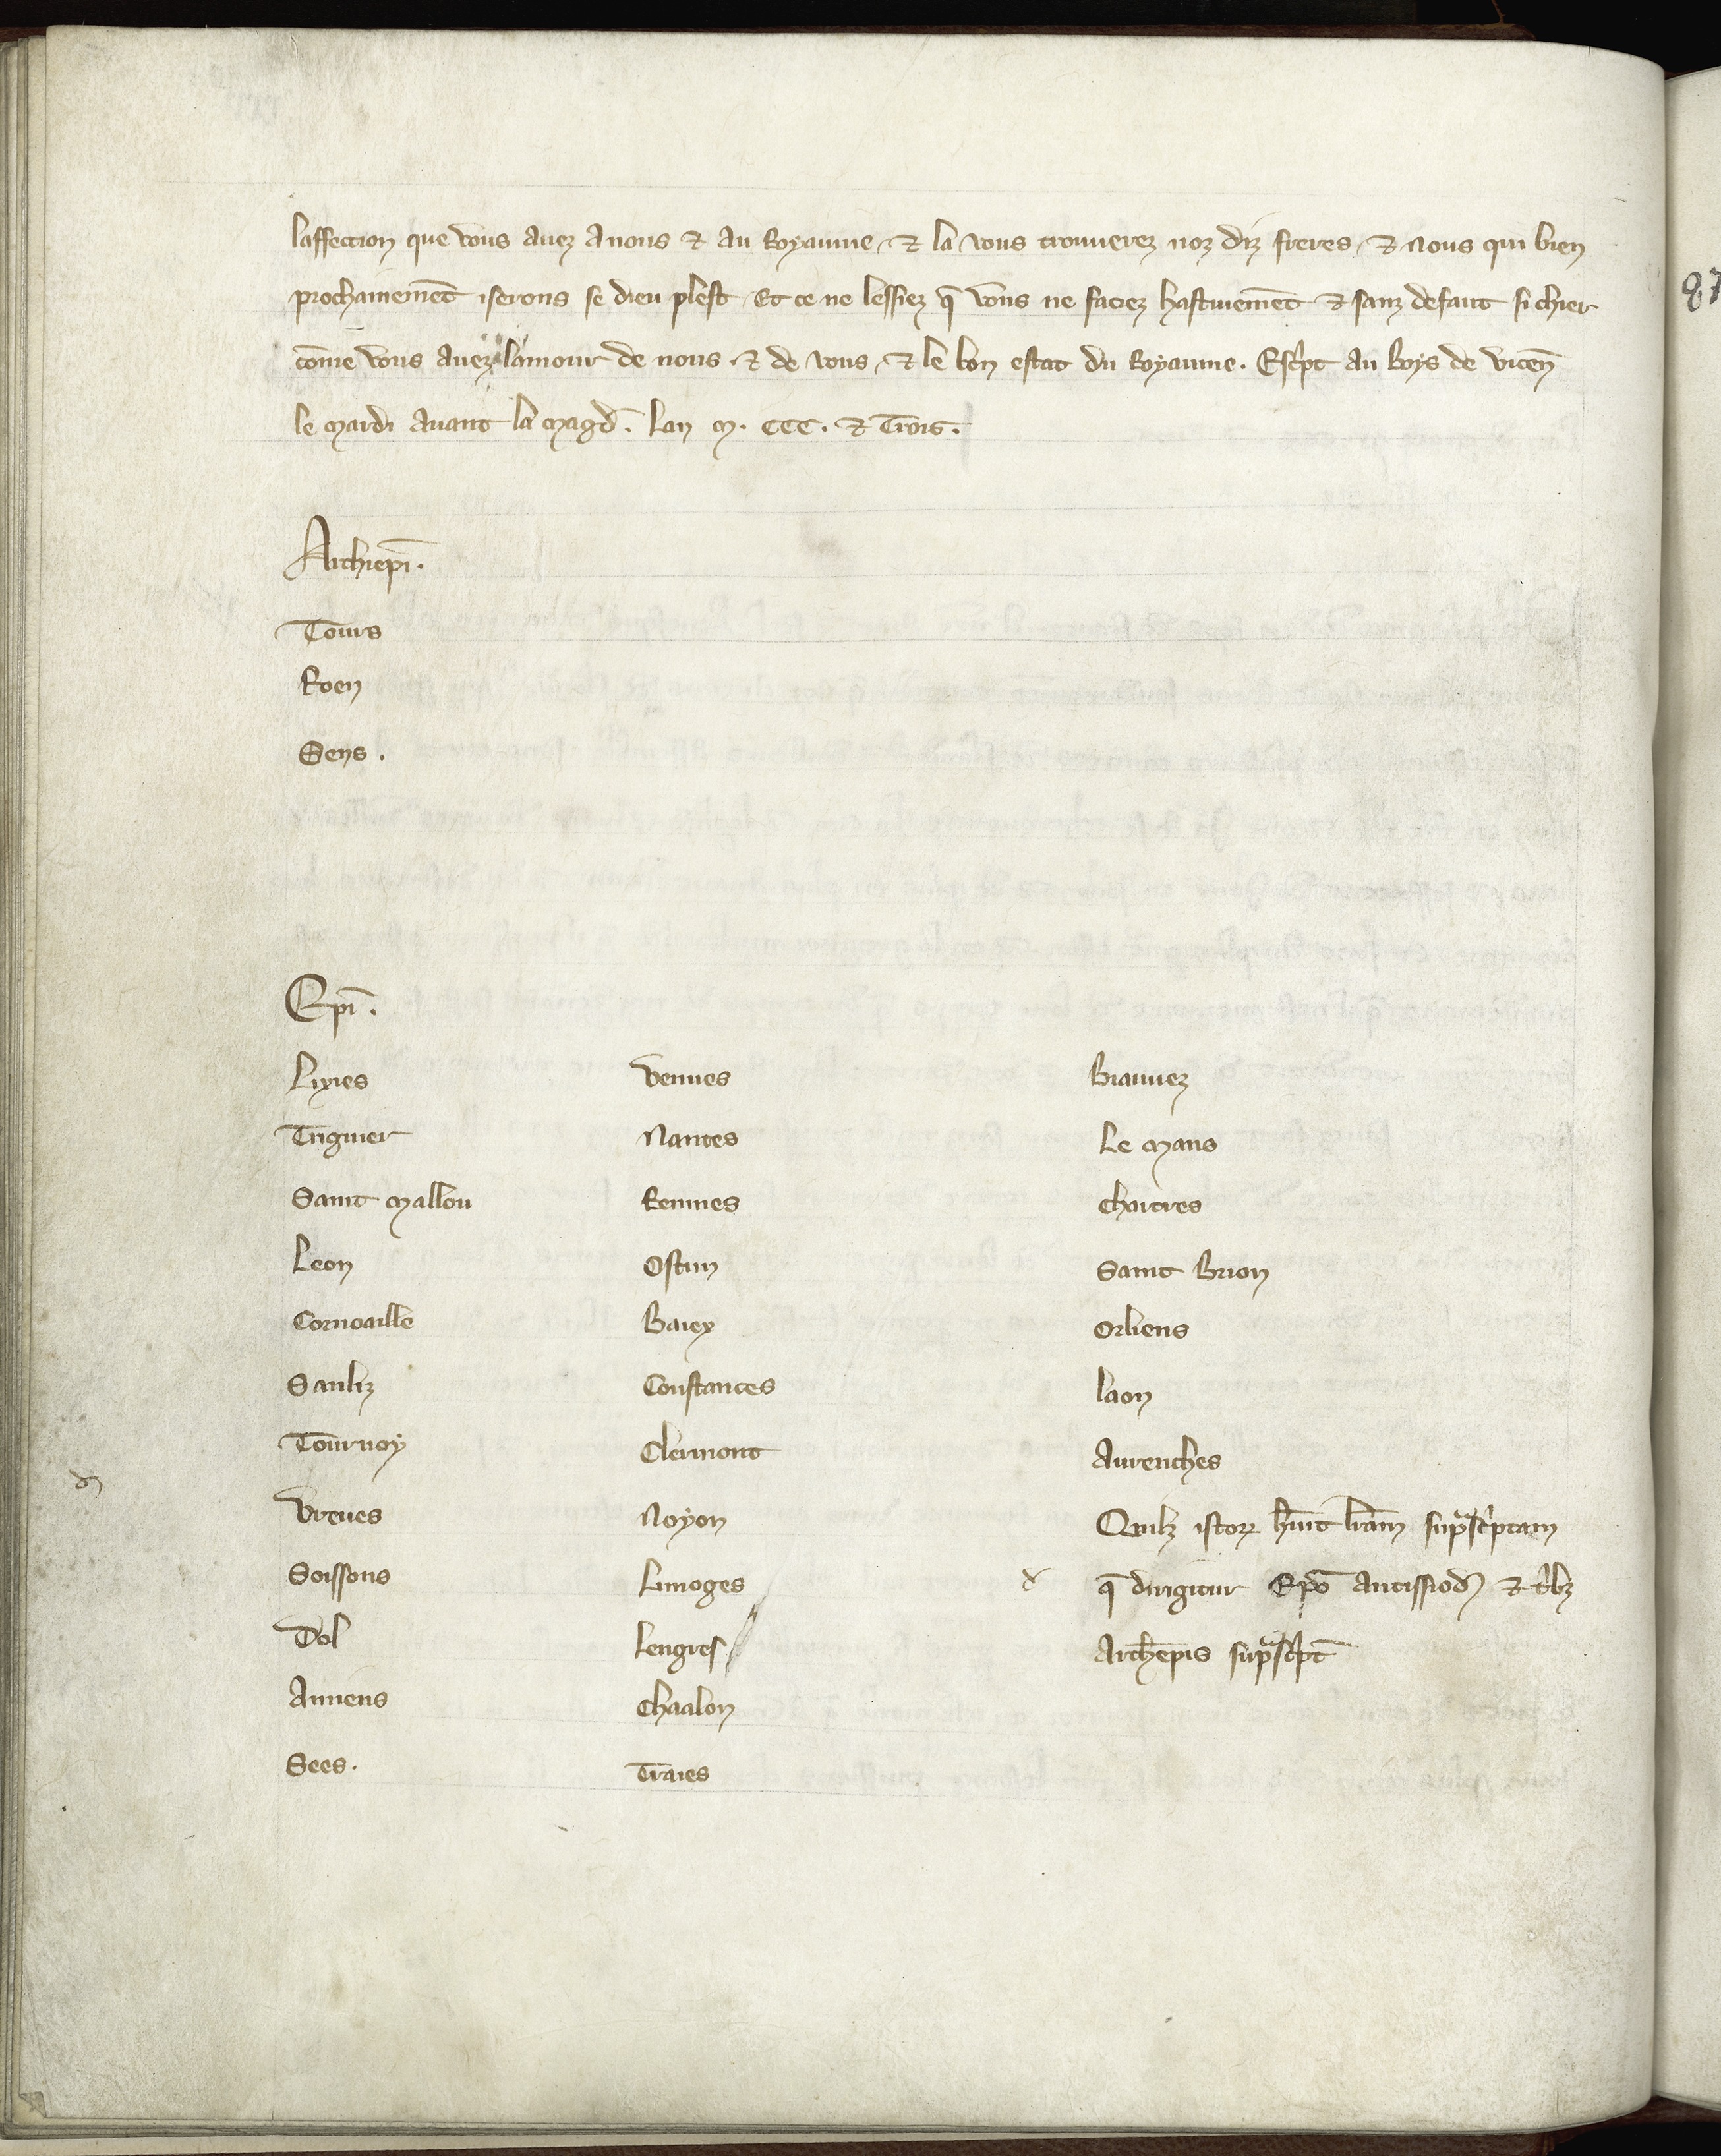 laffection que vous avez a nous ⁊ au Royaume, ⁊ la vous trouverez noz diz freres, ⁊ nous qui bien
prochainemēt iserons se dieu plest Et ce ne lessiez q̄ vous ne faciez hastivemēt ⁊ sanz defaut si chier
cōme vous avez lamour de nous ⁊ de vous, ⁊ le bon estat du Royaume. Esc͛pt au boys de vicen̄
le mardi avant la magd̄. Lan m. ccc. ⁊ Trois.
Archiepī.
Tours
Roen
Sens.
Epī.
Lixies
Triguier
Saint mallou
Leon
Cornoaille
Sanliz
Tournoy
Vreues
Soissons
Dol
Amiens
Sees.
Vennes
Nantes
Rennes
Ostun
Baiex
Constances
Clermont
Noyon
Limoges
Lengres
Chaalon
Traies
Biauvez
Le mans
Chartres
Saint Brion
Orliens
Laon
Avrenches
Quilꝫ istoꝝ hn̄it lr̄am supͣsc͛ptam
q̄ dirigitur Ep̄o Autissiod ⁊ t͛bꝫ
Arch̄ep̄is supͣsc͛pt̄
87